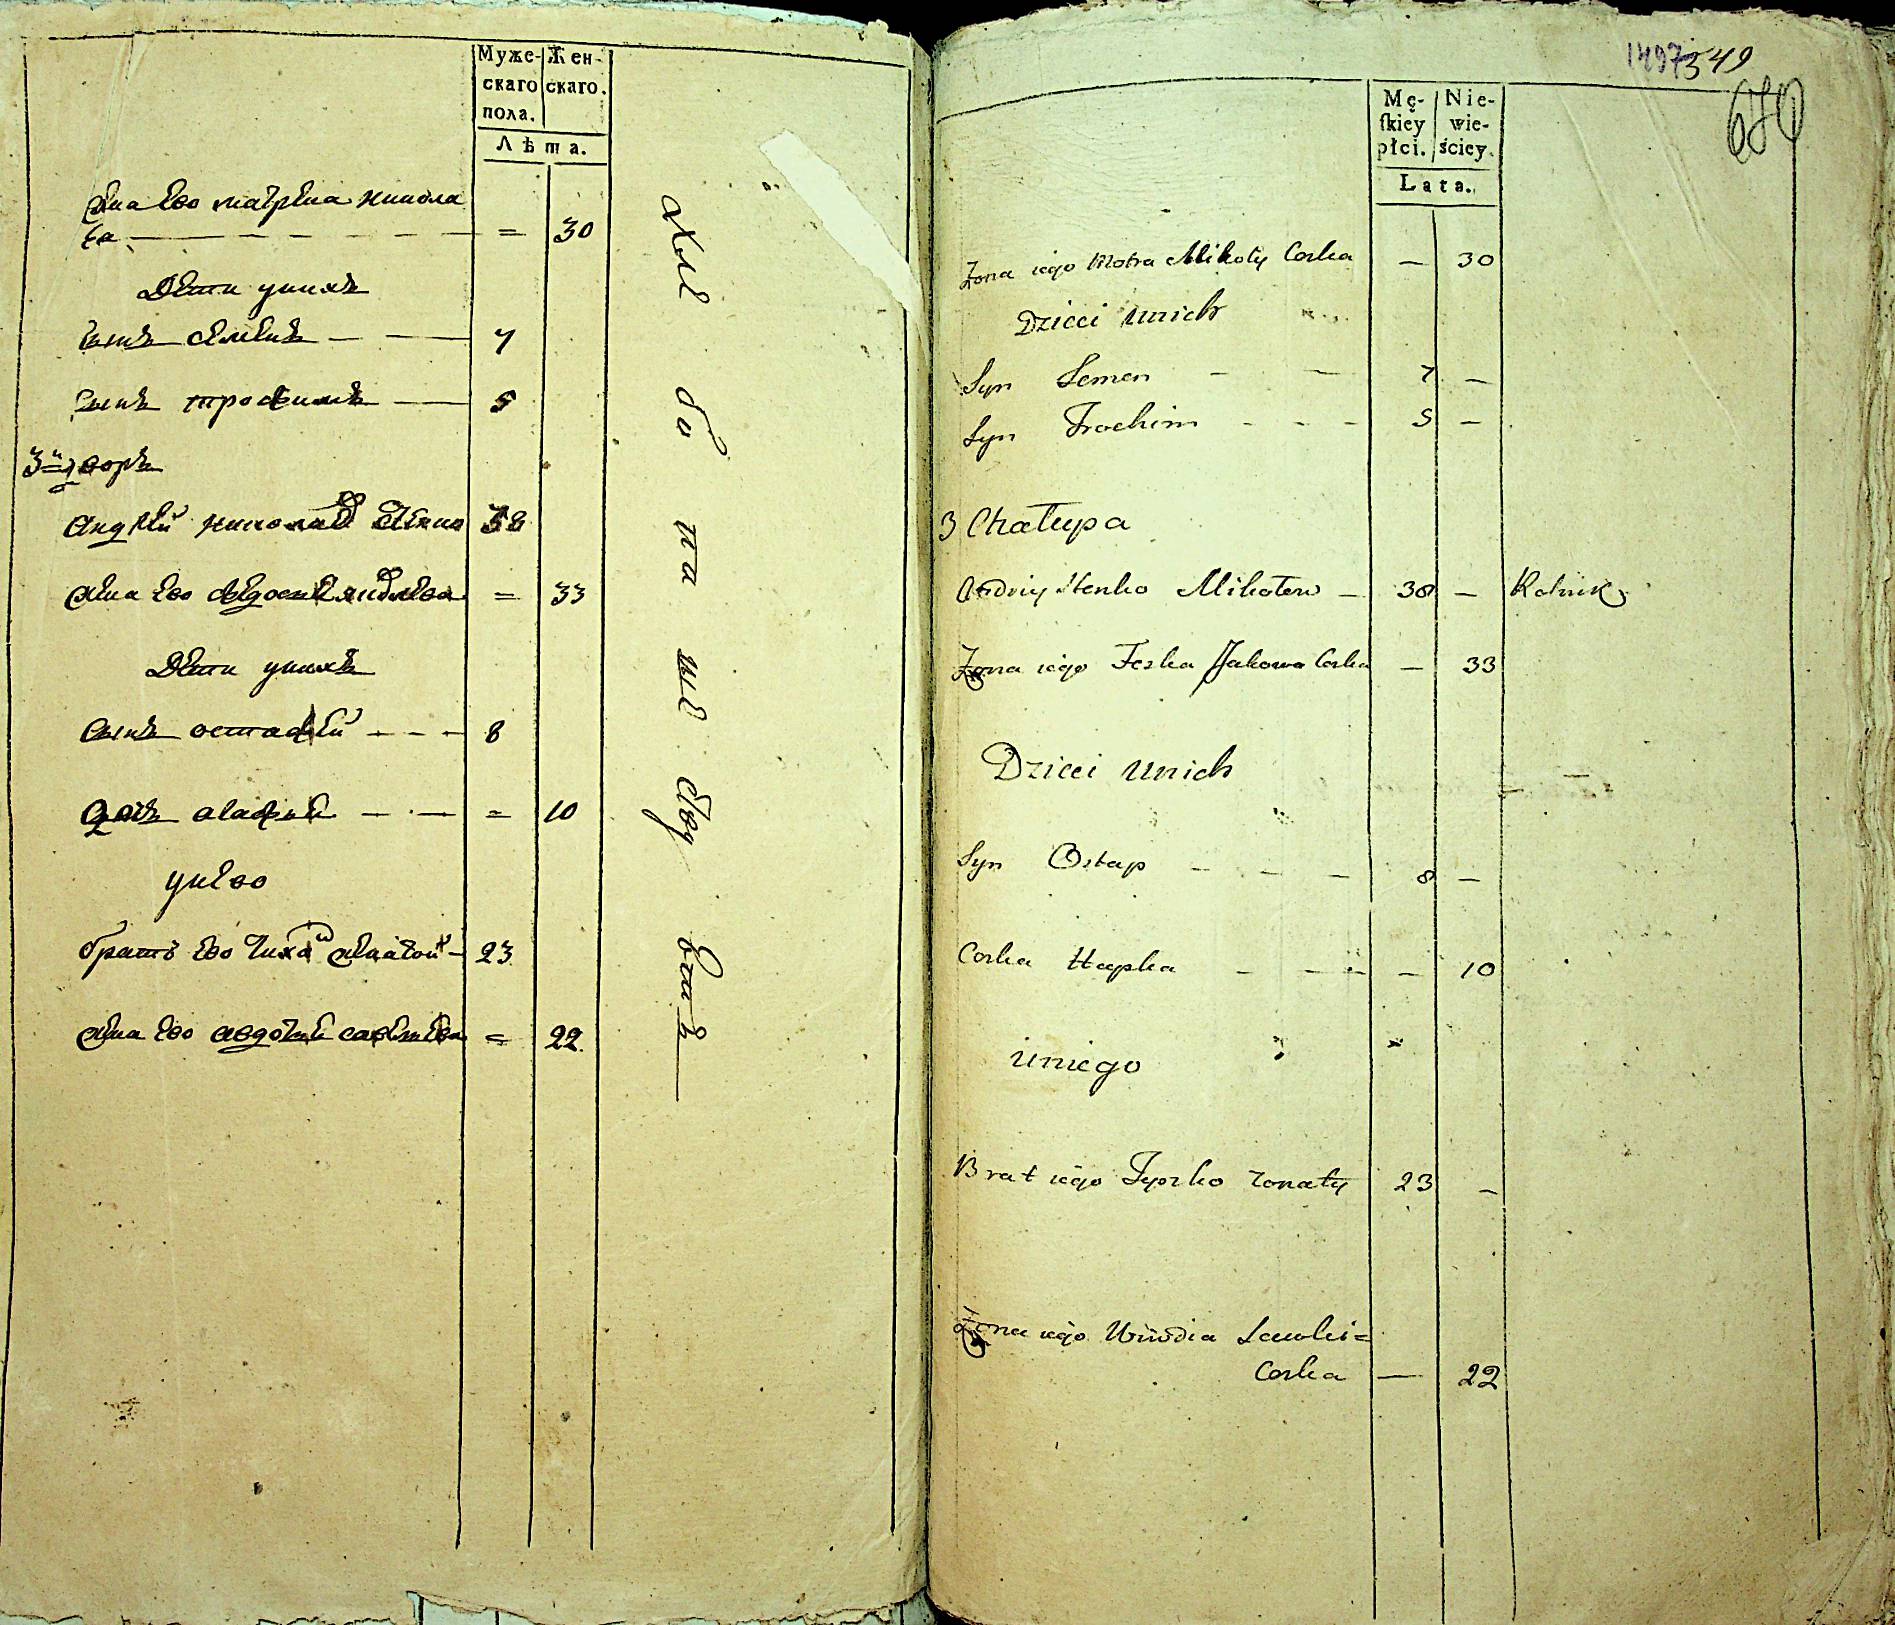 Муже-
скаго
пола.
Жен-
скаго.
Лѣта.
жена ево матрена никола
ева = 30
Дети уних
сынъ семенъ 7
сынъ трофимъ 5
3й дворъ
Андрей николаев 38
жена ево феодосия яковлева = 33
Дети унихъ
сынъ остафей 8
дочь агафия = 10
унево
братъ ево тихон женатой 23
жена ево авдотия савельева = 22
хле бо па ше ст ву етъ
1497 549
680
Mę-
ſkiey
płci.
Nie-
wie-
ściey.
Lata.
Zona iego Motra Mikoły Corka — 30
Dzieci unich
Syn Semen 7 —
Syn Trochim 5 —
3 Chałupa
Andriy Stenko Mikołow — 38 — Rolnik
Zona iego Feska Jakowa Corka — 33
Dzieci unich
Syn Ostap 8 —
Corka Hapka — 10
uniego
Brat iego Tyszko zonaty 23 —
Zona iego Uwdia Sawki=
Corka — 22